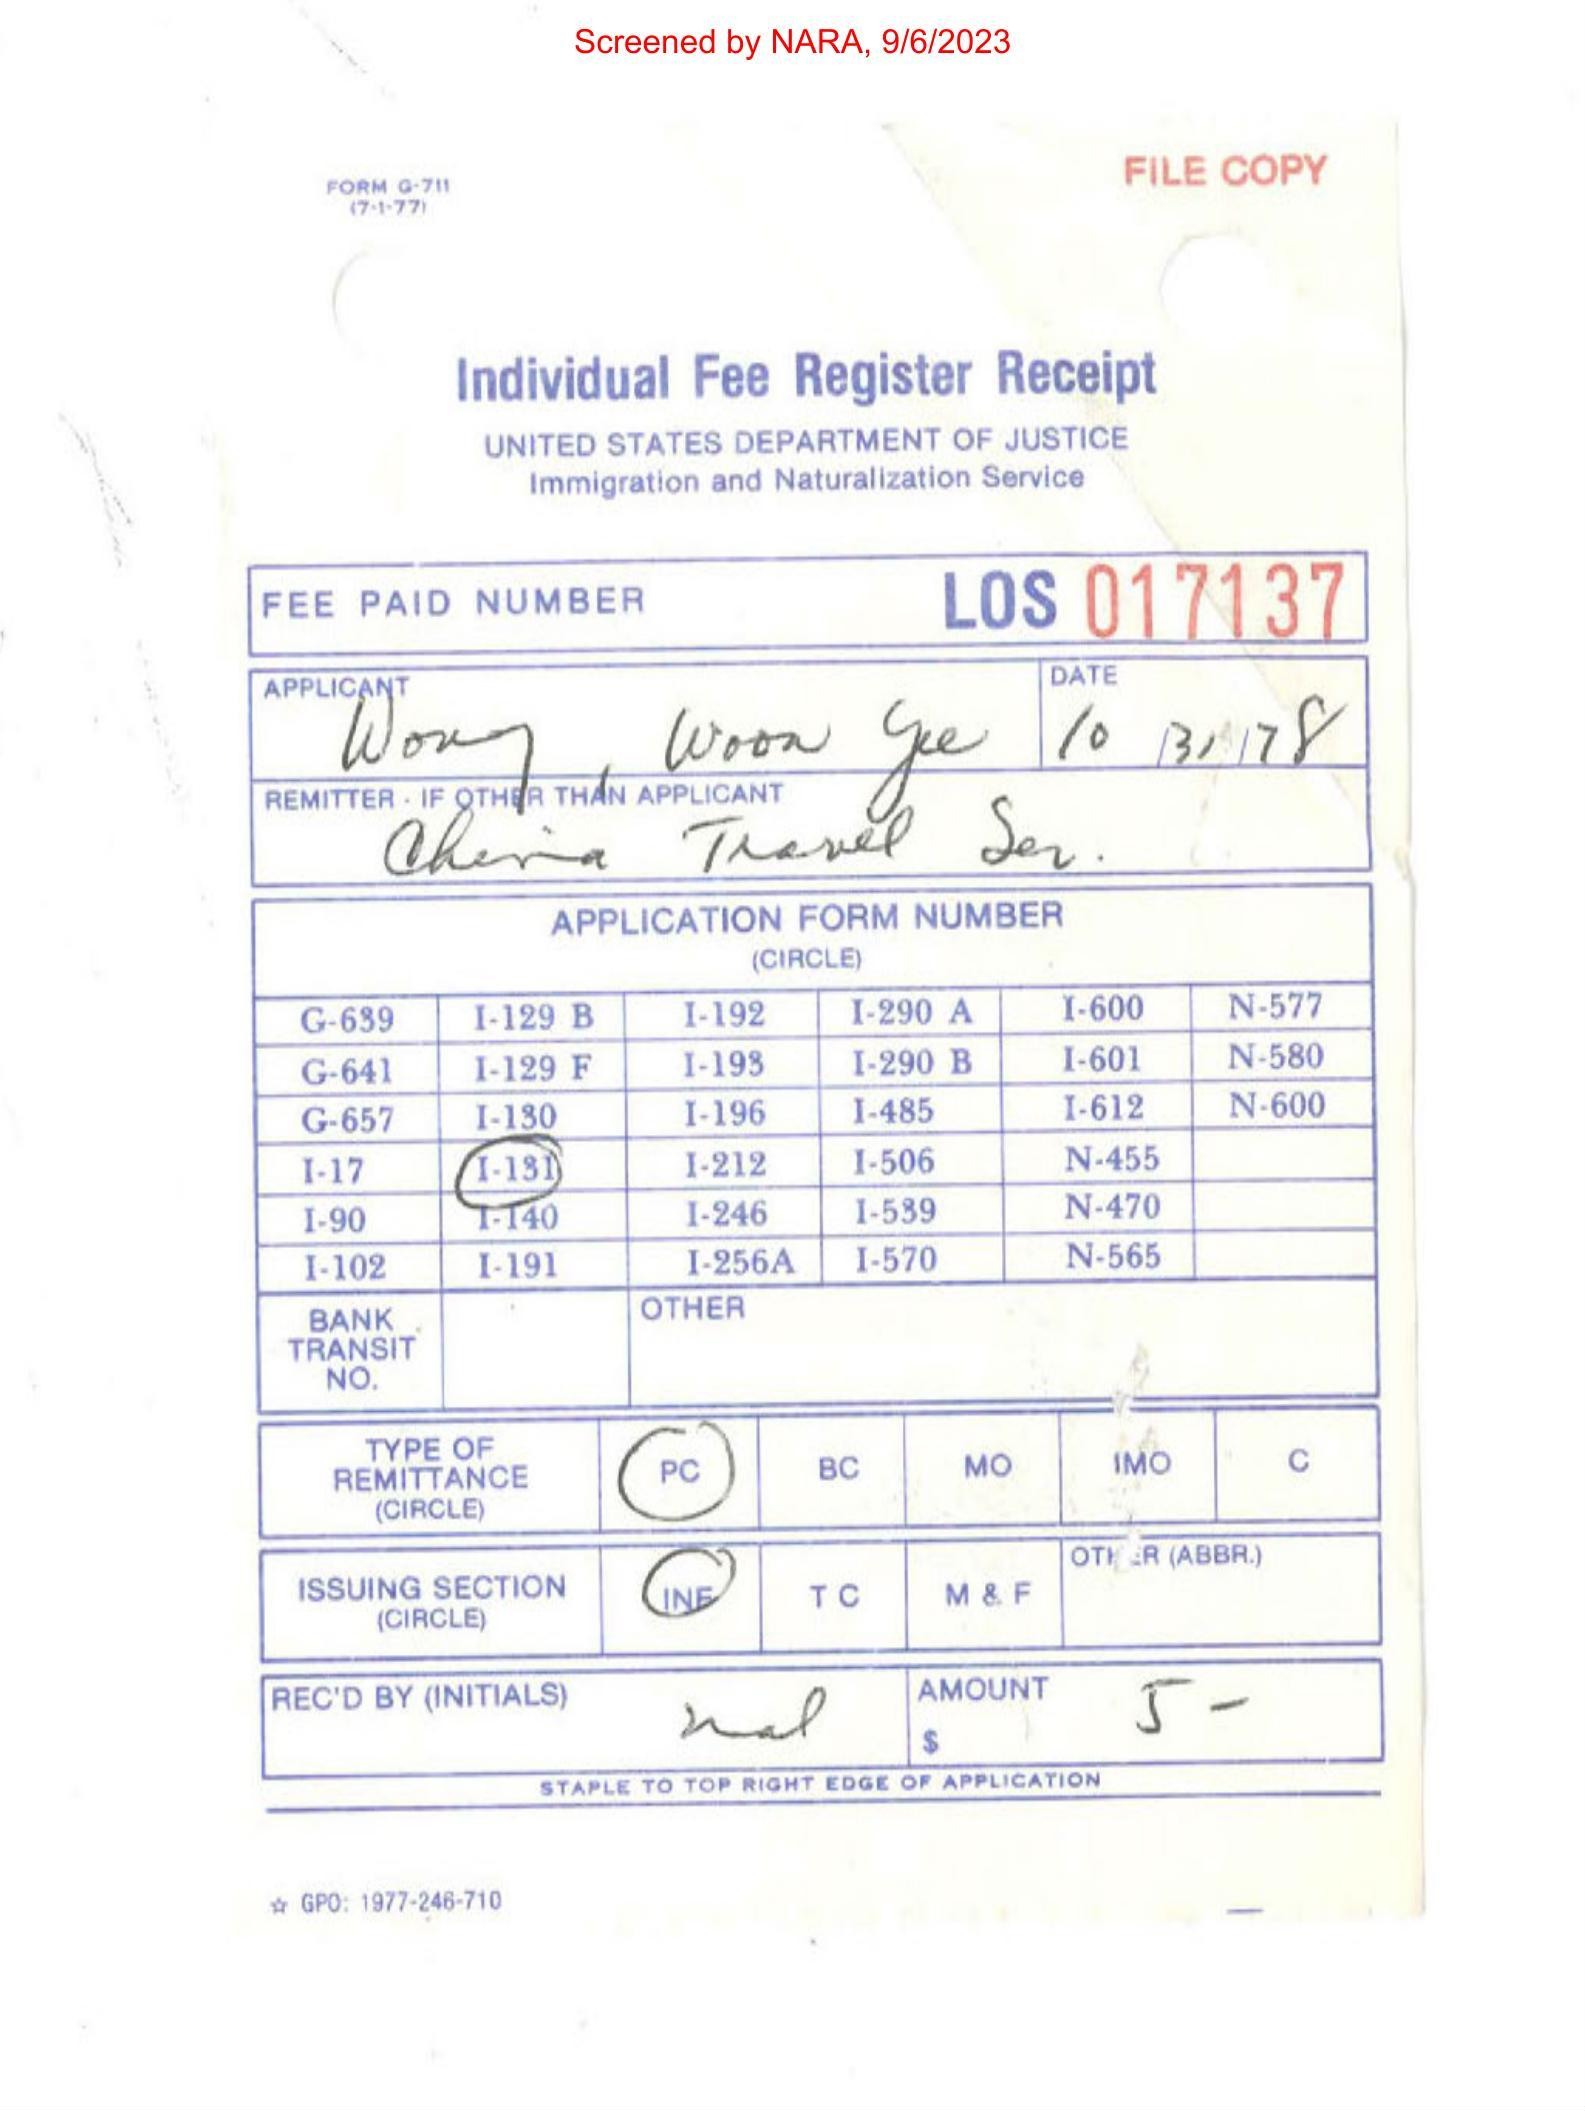 Screened by NARA, 9/6/2023
FILE COPY
FORM G-711
(7-1-77)
Individual Fee Register Receipt
UNITED STATES DEPARTMENT OF JUSTICE
Immigration and Naturalization Service
FEE PAID NUMBER LOS 017137
APPLICANT DATE
Wong, Woon Yee 10 /31/78
REMITTER - IF OTHER THAN APPLICANT
China Travel Ser.
APPLICATION FORM NUMBER
(CIRCLE)
G-639 I-129 B I-192 I-290 A I-600 N-577
G-641 I-129 F I-193 I-290 B I-601 N-580
G-657 I-130 I-196 I-485 I-612 N-600
I-17 I-131 I-212 I-506 N-455
I-90 I-140 I-246 I-539 N-470
I-102 I-191 I-256A I-570 N-565
BANK TRANSIT NO. OTHER
TYPE OF REMITTANCE (CIRCLE) PC BC MO IMO C
ISSUING SECTION (CIRCLE) INF T C M & F OTHER (ABBR.)
REC'D BY (INITIALS) AMOUNT
$ 5 -
STAPLE TO TOP RIGHT EDGE OF APPLICATION
☆ GPO: 1977-246-710